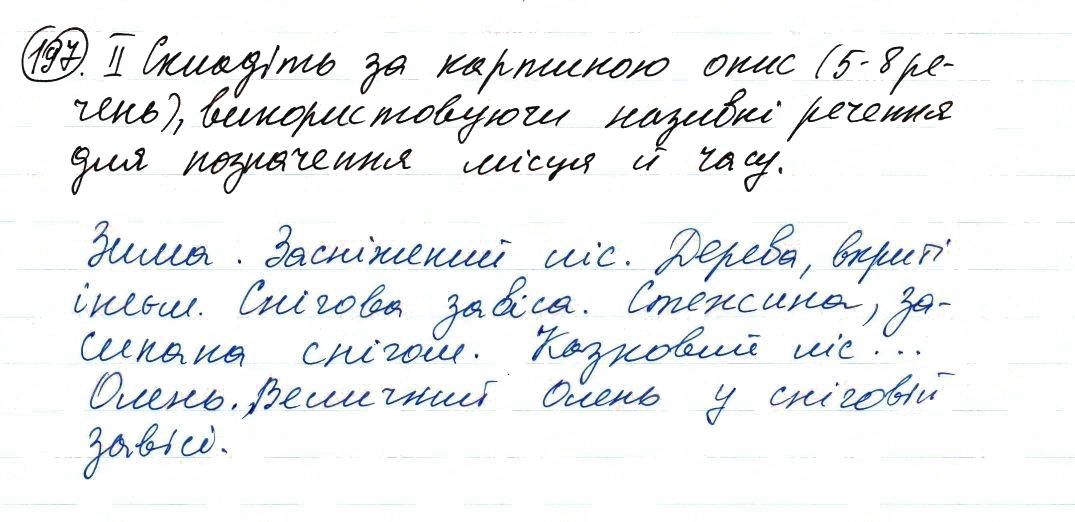 197. II Складіть за картиною опис (5-8 ре-
чень), використовуючи називні речення
для позначення місця й часу.
Зима. Засніжений ліс. Дерева, вкриті
інеєм. Снігова завіса. Стежина, за-
сипана снігом. Казковий ліс...
Олень. Величний олень у сніговій
завісі.